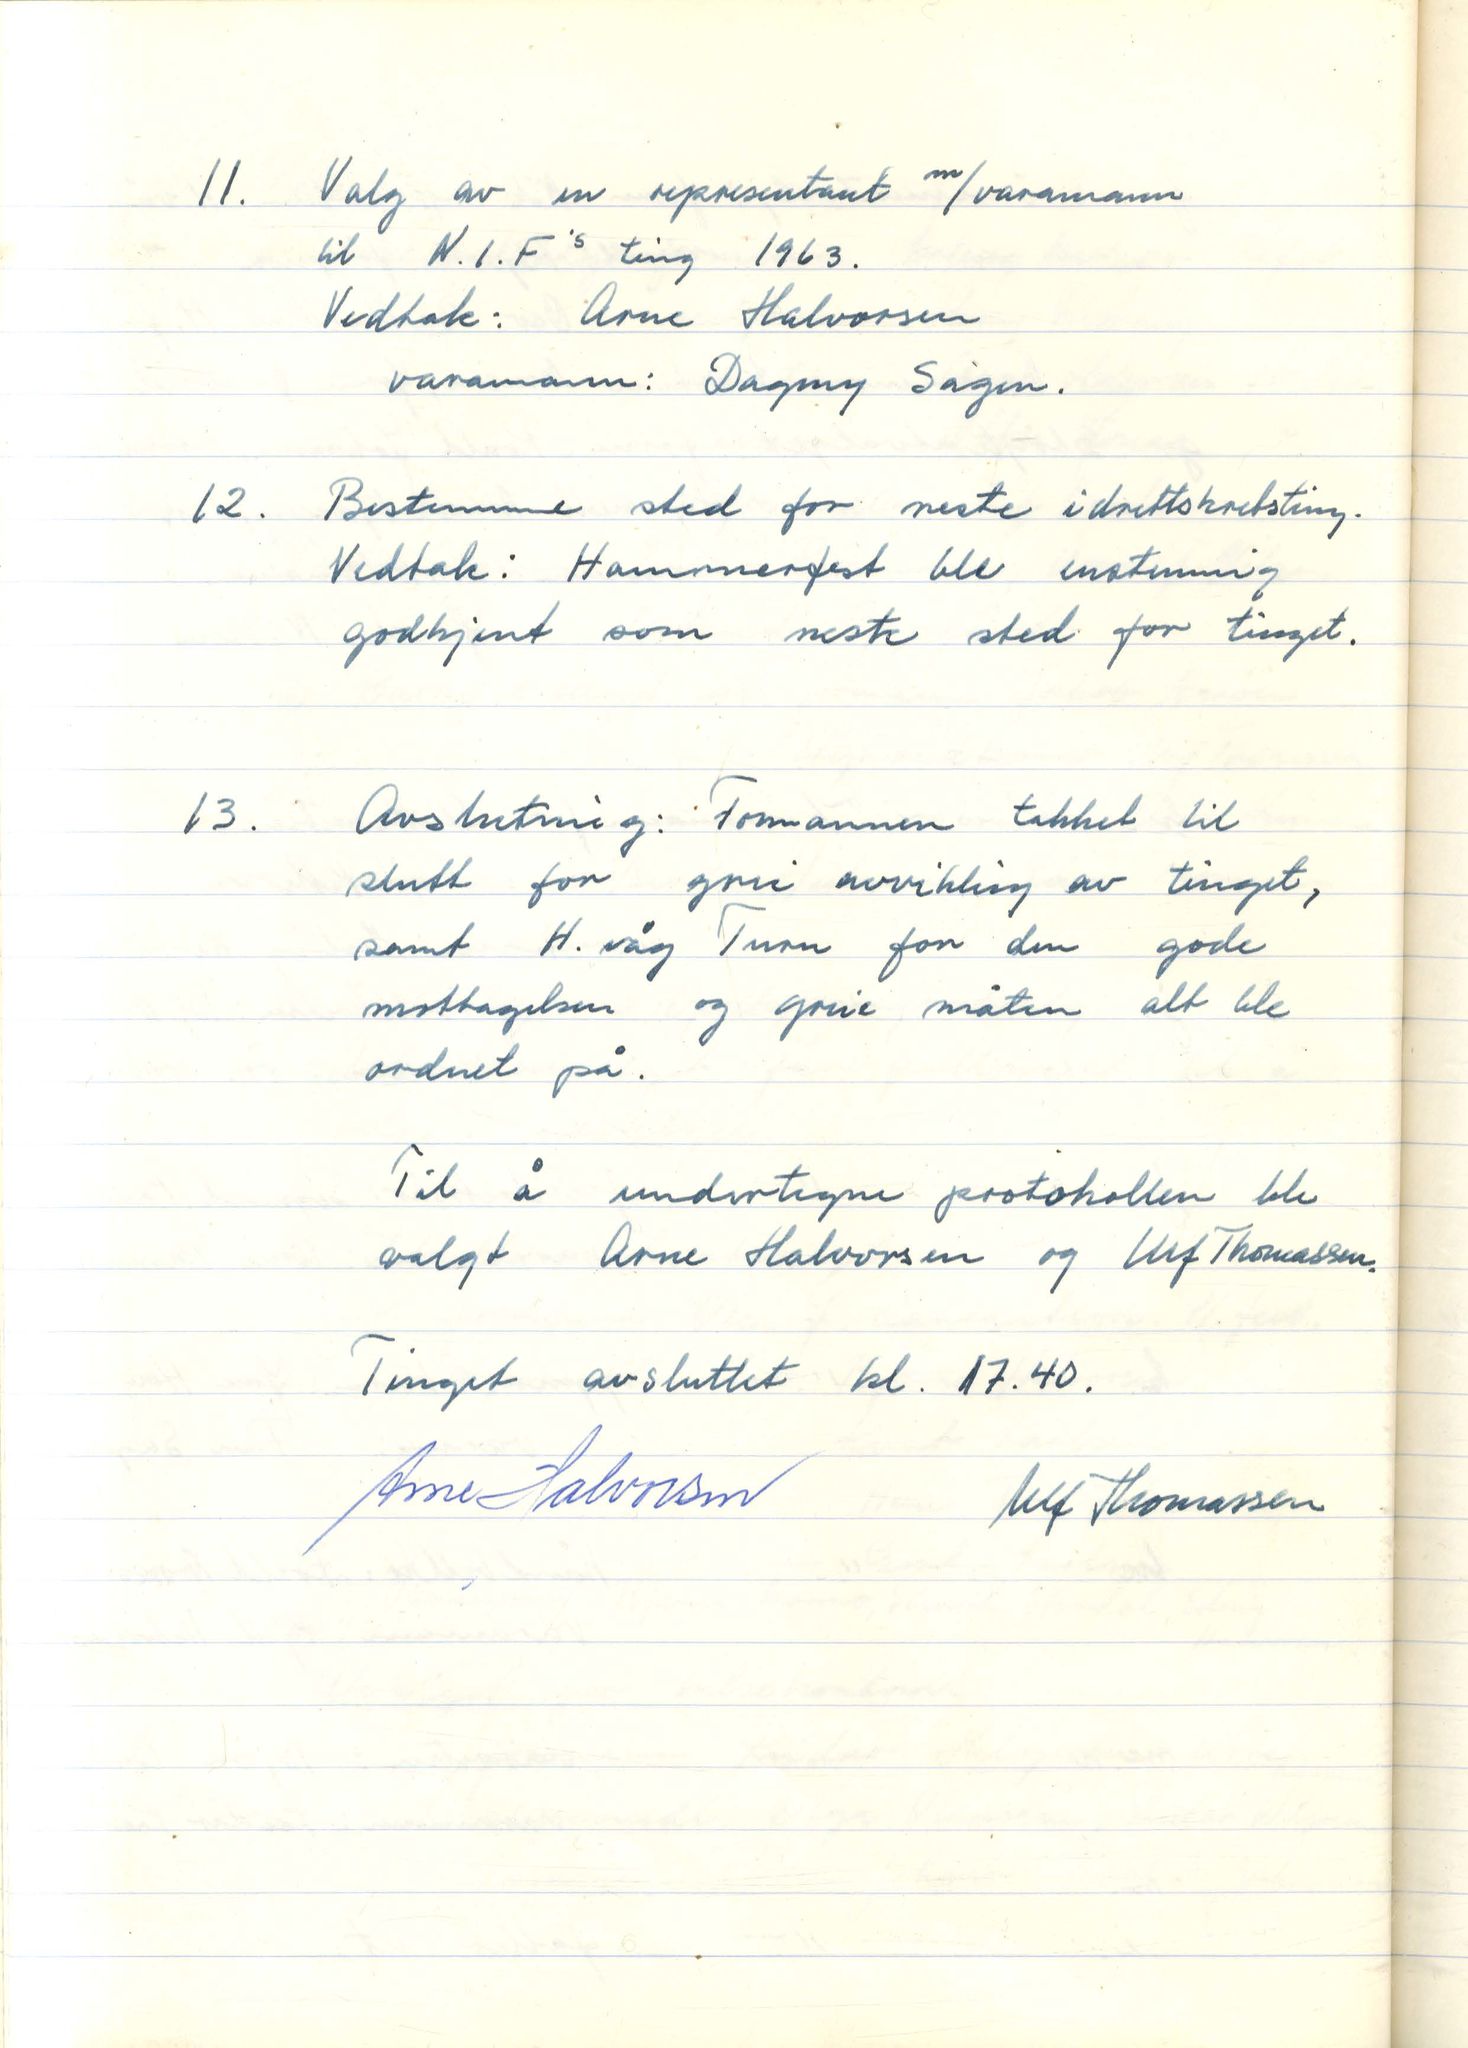 11. Valg av en representant m/varamann
til N.I.F's ting 1963.
Vedtak: Arne Halvorsen
varamann: Dagmy Sågen.
12. Bestemme sted for neste idrettskretsting.
Vedtak: Hammerfest ble enstemmig
godkjent som neste sted for tinget.
13. Avslutning: Formannen takket til
slutt for grei avvikling av tinget,
samt H. våg Turn for den gode
mottagelsen og greie måten alt ble
ordnet på.
Til å undertegne protokollen ble
valgt Arne Halvorsen og Ulf Thomassen.
Tinget avsluttet kl. 17.40.
Arne Halvorsen
Ulf Thomassen